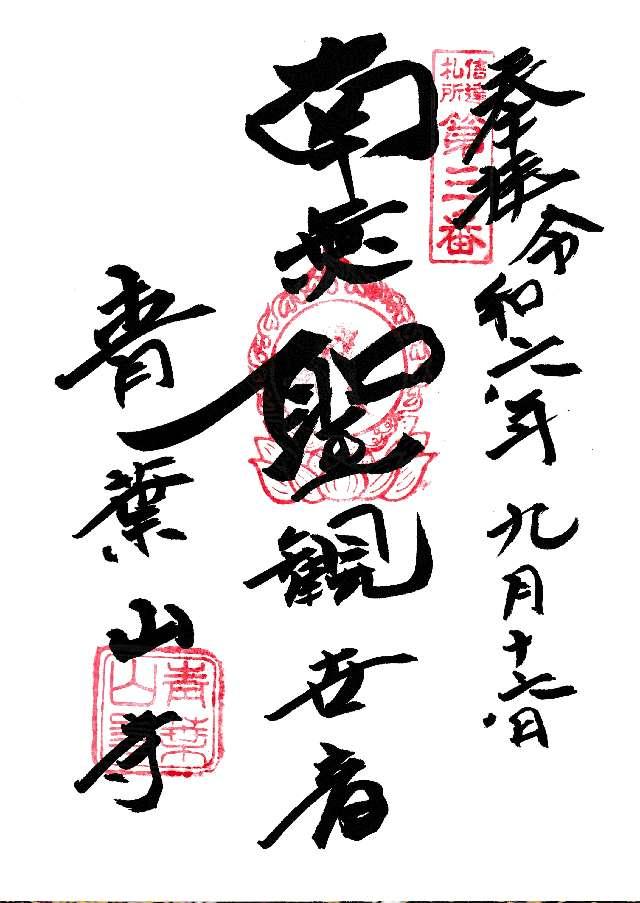 奉拝
令和六年九月十六日
信達
札所
第三番
南無聖観世音
青葉山寺
青葉
山寺